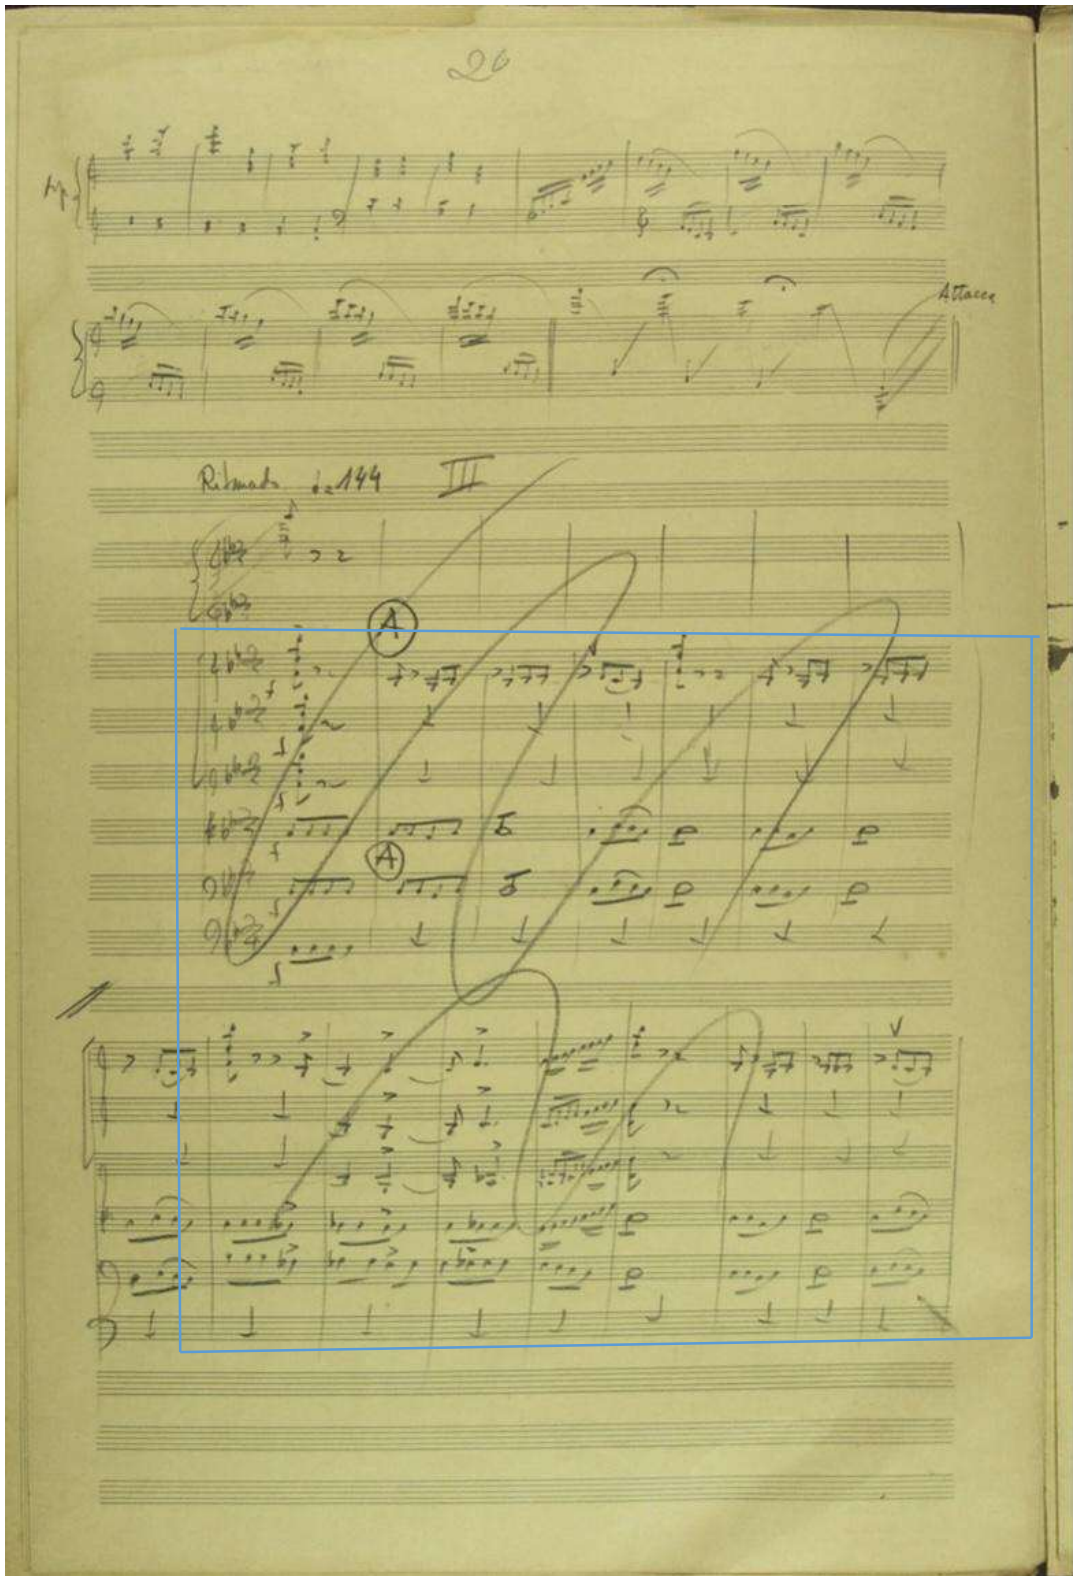 26
Attacca
Ritmado ♩=144 III
A
A